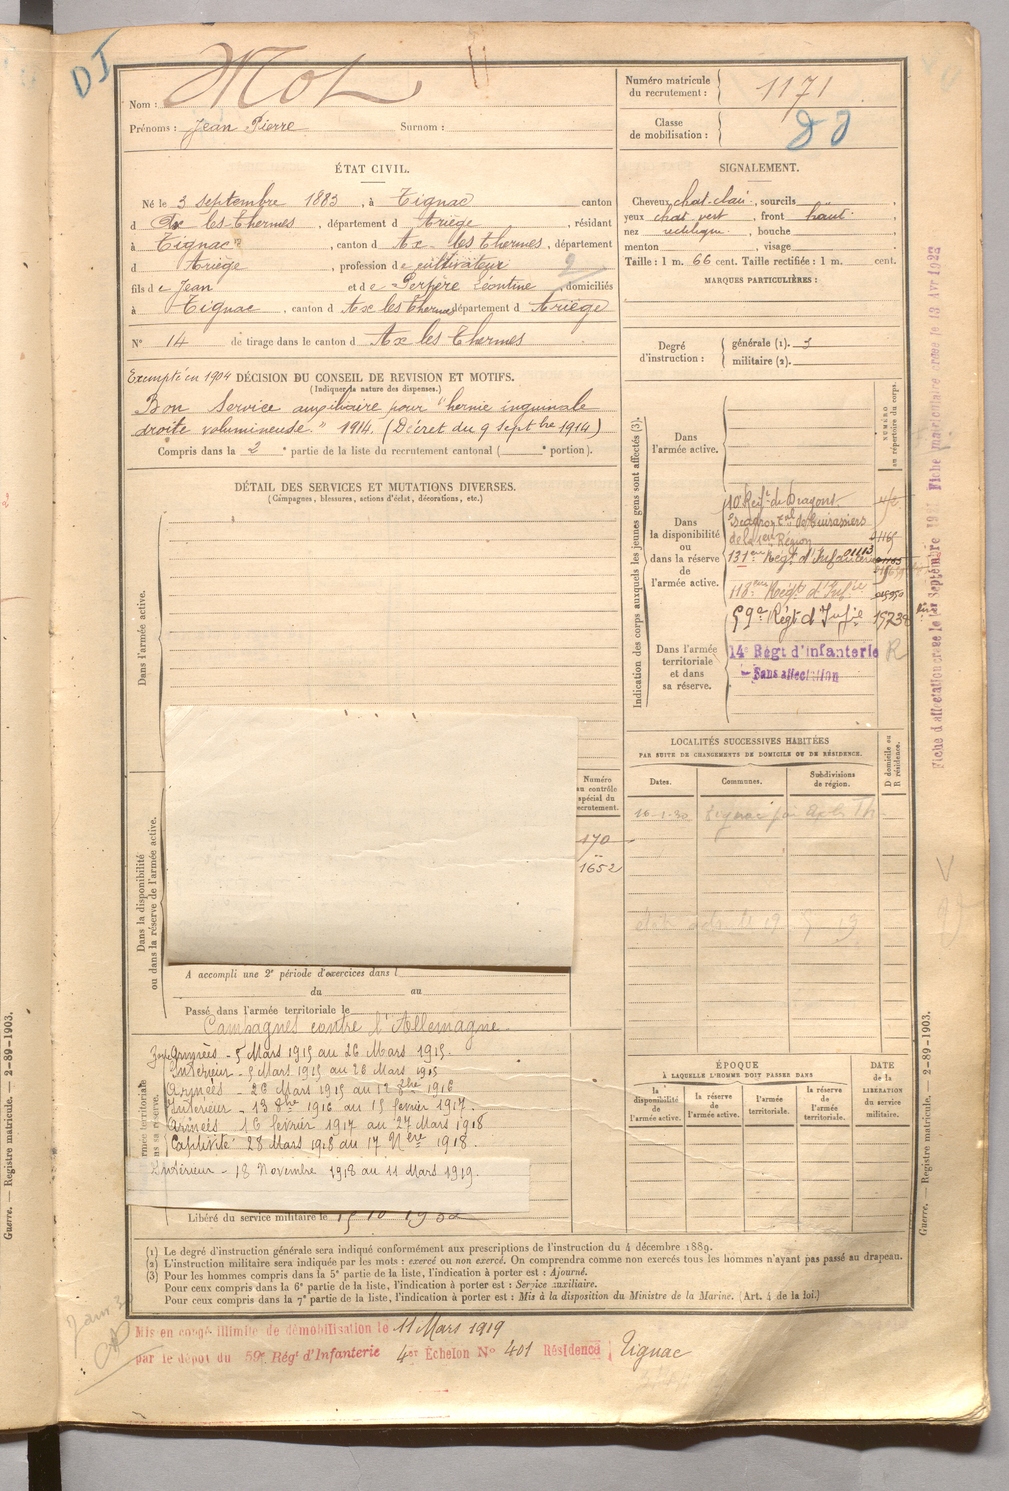 Nom : Mot
Prénoms : Jean Pierre Surnom :
Numéro matricule du recrutement : 1171
Classe de mobilisation :
ÉTAT CIVIL.
Né le 3 septembre 1883, à Tignac canton
d Ax les Thermes, département d Ariège, résidant
à Tignac, canton d Ax les Thermes, département
d Ariège, profession de cultivateur
fils de Jean et de Perpère Léontine, domiciliés
à Tignac, canton d Ax les Thermes département d Ariège
N° 14 de tirage dans le canton d Ax les Thermes
SIGNALEMENT.
Cheveux chat-clair, sourcils "
yeux chat vert, front haut
nez rectiligne, bouche
menton , visage
Taille : 1 m. 66 cent. Taille rectifiée : 1 m. cent.
MARQUES PARTICULIÈRES :
Degré d'instruction : générale (1). 3
militaire (2).
Exempté en 1904 DÉCISION DU CONSEIL DE REVISION ET MOTIFS.
(Indiquer la nature des dispenses.)
Bon Service auxiliaire pour "hernie inguinale
droite volumineuse." 1914. (Décret du 9 septbre 1914)
Compris dans la 2e partie de la liste du recrutement cantonal ( e portion).
DÉTAIL DES SERVICES ET MUTATIONS DIVERSES.
(Campagnes, blessures, actions d'éclat, décorations, etc.)
Dans l'armée active.
Dans la disponibilité
ou dans la réserve de l'armée active.
Numéro au contrôle spécial du recrutement.
170
1652
A accompli une 2e période d'exercices dans l
du au
Passé dans l'armée territoriale le
Campagnes contre l'Allemagne
Intérieur - 5 Mars 1915 au 26 Mars 1915
Armées - 26 Mars 1915 au 12 8bre 1916
Intérieur - 13 8bre 1916 au 15 février 1917.
Armées - 16 février 1917 au 27 Mars 1918
Captivité 28 Mars 1918 au 17 Nbre 1918.
Intérieur - 18 Novembre 1918 au 11 Mars 1919.
Libéré du service militaire le
Indication des corps auxquels les jeunes gens sont affectés (3).
NUMÉRO au répertoire du corps.
Dans l'armée active.
Dans la disponibilité ou dans la réserve de l'armée active.
10 Regt de Dragons
131eme Regt d'Infanterie
59e Régt d'Infie
Dans l'armée territoriale et dans sa réserve.
14e Régt d'infanterie
Sans affectation
R
LOCALITÉS SUCCESSIVES HABITÉES
PAR SUITE DE CHANGEMENTS DE DOMICILE OU DE RÉSIDENCE.
Dates. Communes. Subdivisions de région. D domicile ou R résidence.
ÉPOQUE
À LAQUELLE L'HOMME DOIT PASSER DANS
la disponibilité de l'armée active. la réserve de l'armée active. l'armée territoriale. la réserve de l'armée territoriale.
DATE de la LIBÉRATION du service militaire.
(1) Le degré d'instruction générale sera indiqué conformément aux prescriptions de l'instruction du 4 décembre 1889.
(2) L'instruction militaire sera indiquée par les mots : exercé ou non exercé. On comprendra comme non exercés tous les hommes n'ayant pas passé au drapeau.
(3) Pour les hommes compris dans la 5e partie de la liste, l'indication à porter est : Ajourné.
Pour ceux compris dans la 6e partie de la liste, l'indication à porter est : Service auxiliaire.
Pour ceux compris dans la 7e partie de la liste, l'indication à porter est : Mis à la disposition du Ministre de la Marine. (Art. 4 de la loi.)
Mis en congé illimité de démobilisation le 11 Mars 1919
par le dépôt du 59e Régt d'Infanterie 4e Échelon N° 401 Résidence Tignac
Guerre. — Registre matricule. — 2-89-1903.
Guerre. — Registre matricule. — 2-89-1903.